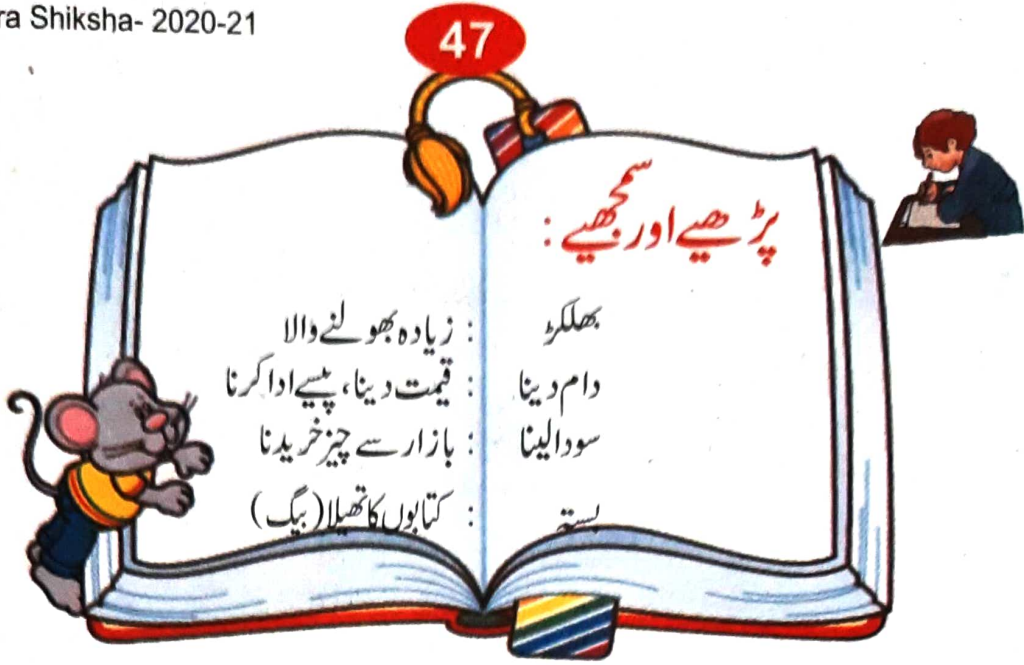 ra Shiksha- 2020-21
47
پڑھیے اور سمجھیے :
بھلکڑ : زیادہ بھولنے والا
دام دینا : قیمت دینا، پیسے ادا کرنا
سودا لینا : بازار سے چیز خریدنا
بستہ : کتابوں کا تھیلا (بیگ)